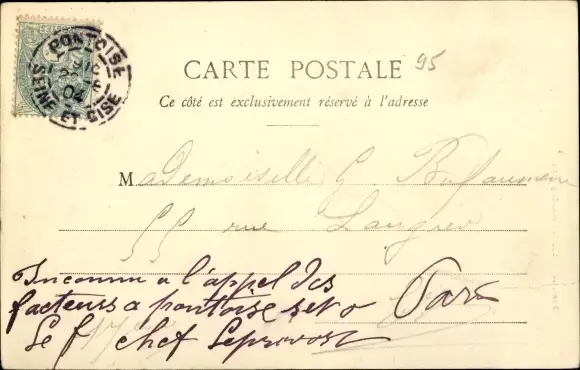 PONTOISE
04
SEINE ET OISE
CARTE POSTALE
95
Ce côté est exclusivement réservé à l'adresse
Mademoiselle G
55 rue Laugier
Inconnu a l'appel des
facteurs a pontoise
Paris
Le f chef Leprevost